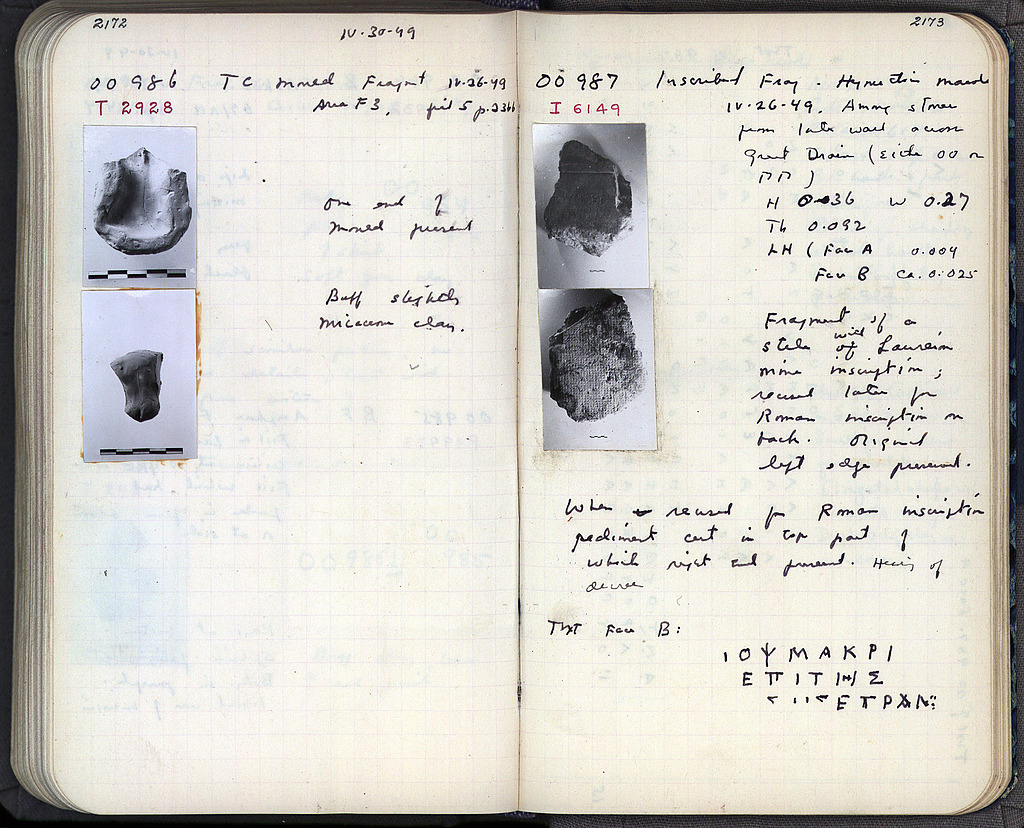 2172
IV-30-49
OO 986 TC Mould Fragmt IV-26-49
T 2928 Area F3, pit 5 p.
One end of
mould present
Buff slightly
micaceous clay.
2173
OO 987 Inscribed Frag. Hymettian marble
I 6149 IV-26-49. Among stones
from late wall across
Great Drain (side OO or
ΠΠ)
H 0.36 W 0.27
Th 0.092
LH (Face A 0.009
Face B ca. 0.025
Fragment of a
stele with of Laureion
mine inscription;
reused later for
Roman inscription on
back. Original
left edge preserved.
When reused for Roman inscription
pediment cut in top part of
which right end preserved. Heading of
decree
Text Face B:
ΙΟΨΜΑΚΡΙ
ΕΠΙΤΗΣ
ΕΤΡΑΝ